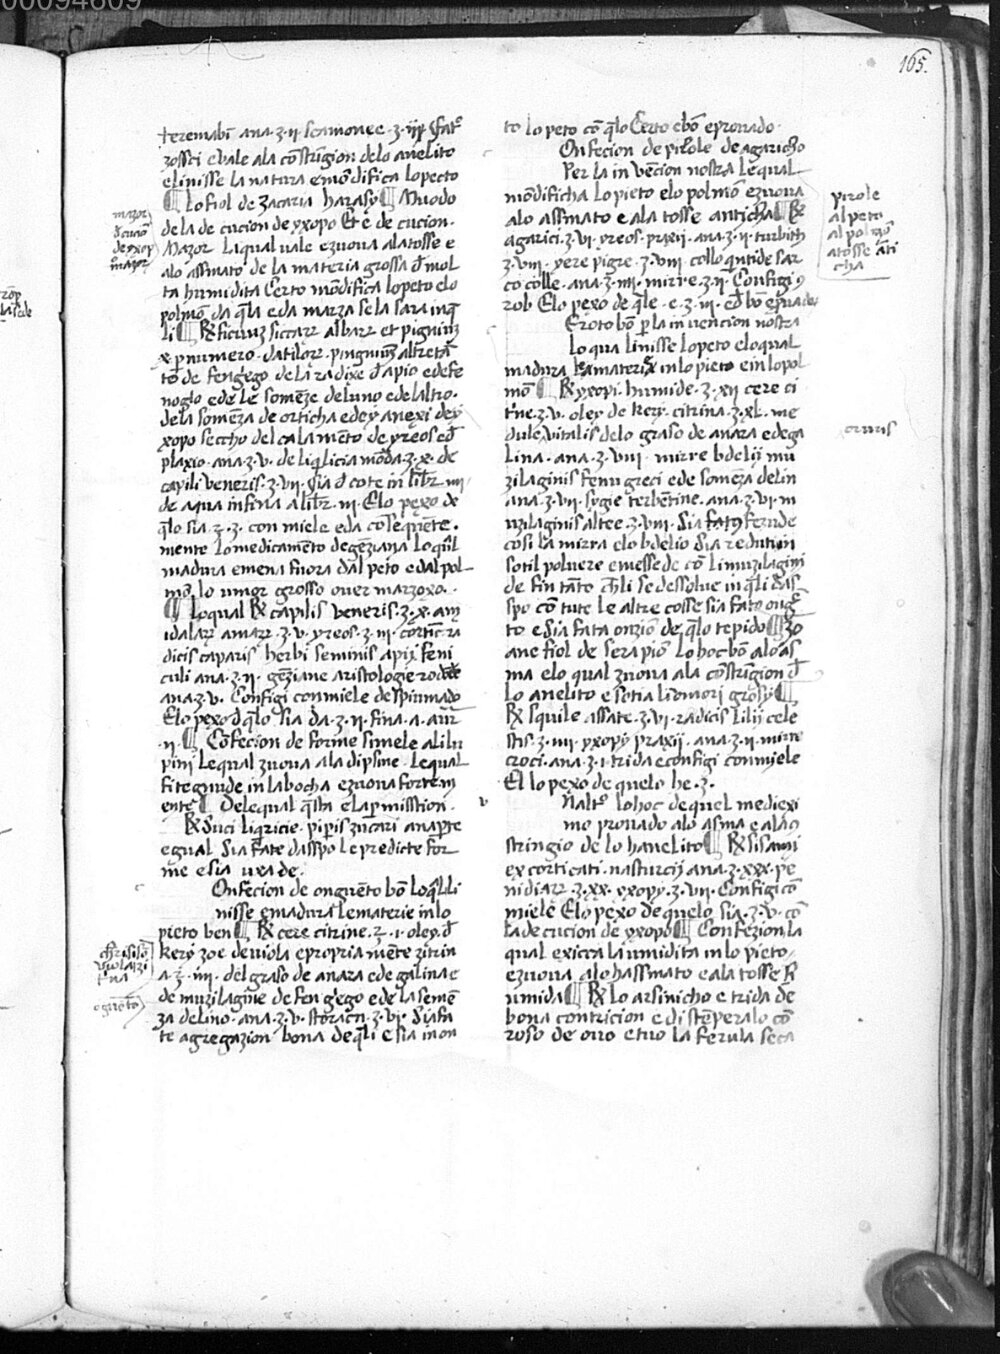 00094609
165.
teremabī ana .ʒ. ii. scamonee .ʒ. iiij. Sfatº
zossei e vale ala cōstrīgion delo anelito
e linisse la natura e mōdifica lo pecto
¶ Lo fiol de zacaria harasy ¶ Muodo
de la de cucion de yxopo Et ē de cucion.
Mazor Li qual vale ezuova ala tosse e
alo assmato de la materia grossa đ mol
ta humidita Certo mōdifica lo peto elo
polmō da q̄la e da marza se la sara in q̄
li ¶ ℞ ficuuz siccarꝝ albarꝝ et pigniuz
x. ꝑ numero. datilorꝝ pinguiuz altretā
to de fengego de la radixe đ apio e de fe
noglo e de le somēze de luno e de laltro.
de la somēza de orticha e de yanexi de y
xopo seccho del calamēto de yreos e đ
plaxio. ana .ʒ. v. de liqlicia mōda .ʒ. x. de
capili veneris .ʒ. vii. sia đ cote in librꝝ iiii
de aqua infina a librꝝ. iii. E lo pexo de
q̄lo sia .ʒ. ʒ. con miele e da cōsequēte.
mente Lo medicamēto de gēziana Lo q̄l
madura e mena fuora dal peto e dal pol
mō lo umor grosso over marzoxo..
¶ Lo qual ℞ capilis veneris .ʒ. x. am
idalarꝝ amarꝝ .ʒ. v. yreos .ʒ. iii. corticꝝ ra
dicis caparis herbi seminis apij feni
culi ana .ʒ. ii. geziane aristologie rotōde
ana .ʒ. v. Configi con miele despiumado
E lo pexo d q̄lo sia da .ʒ. ii. fina. a. aur
.ii. ¶ Cōfecion de forme simele a li lu
pini Le qual zuova ala dipsine. Le qual
fi tegnude in la bocha e zuova fortem
ente ¶ De le qual q̄sta e la ꝑmission.
℞ Suci liqricie. pipis zucari ana pte
egual Sia fate dasspo le predicte for
me e sia uxade.
Onfecion de onguēto bō Lo q̄l li
nisse e madura le materie in lo
pieto ben ¶ ℞ cere citrine .ʒ. i. oley. đ
keryzoe de viola e propriamēte zitrin
a .ʒ. iiii. del graso de anara e de galina e
de muzilagine de fengego e de la semē
za de lino. ana .ʒ. v. storacꝭ .ʒ. vi. Sia fa
te agregazion bona de q̄li e sia in on
mazor
đcucio
de yxop
mazor
violazi
tina
oguēto
to lo peto cō q̄lo Certo e bō e provado.
Onfecion de pirole de agaricho
Per la invēcion nostra Le qual
mōdificha lo pieto e lo polmō e zuova
alo assmato e ala tosse anticha ¶ ℞
agarici .ʒ. vi. yreos. praxii. ana .ʒ. ii. turbith
.ʒ. viii. yere pigre .ʒ. viii. colloquitide sar
cocolle. ana .ʒ. iiii. mirre .ʒ. ii. Configi 9
rob E lo pexo de q̄le. e .ʒ. iii. cđ bō e provado
Eroto bō ꝑ la invencion nostra
Lo qua linisse lo peto e lo qual
madura la materia x in lo pieto e in lo pol
mō ¶ ℞ yxopi. humide .ʒ. xii cere ci
tne .ʒ. v. oley de kery. citrina .ʒ. xL. me
dule vitalis de lo graso de anara e de ga
Lina. ana .ʒ. viii. mirre bdelij mu
zilaginis fenugreci e de somēza de lin
ana .ʒ. vii. sygie terbētine. ana .ʒ. vi. m
uzilaginis altee .ʒ. viii. Sia fato ferude
cosi la mirra e lo bdelio sia reduti in
sotil polvere e messede cō li muzilagini
de fin tāto chli se dessolve in q̄li e das
spo cō tute le altre cosse sia fato ongē
to e sia fata onziō de q̄lo tepido ¶ zo
ane fiol de serapiō Lohoc bō alo as
ma e lo qual zuova ala cōstrīgion đ
lo anelito e sotia li omori grossy ¶
℞ squile assate .ʒ. vi. radicis lilij cele
stis .ʒ. iiii. yxopy praxij. ana .ʒ. ii. mirre
croci. ana .ʒ. i. trida e configi con miele
E lo pexo de quelo he .ʒ.
Naltº Lohoc de quel mediexi
mo provado alo asma e ala 9
stringio de lo hanelito ¶ ℞ sisami
excorticati. nasturcij ana .ʒ. xxx. pe
nidiarꝝ .ʒ. xx. yxopy .ʒ. vii. Configi cō
miele E lo pexo de quelo sia .ʒ. v. cō
la de cucion de yxopo ¶ Confezion la
qual exicca la umidita in lo pieto
e zuova alo hassmato e ala tosse h
umida ¶ ℞ Lo arsinicho e trida de
bona contricion e distēperalo cō
roso de ovo e tuo la ferula seca
Pirole
al peto
al polmō
a tosse āti
cha